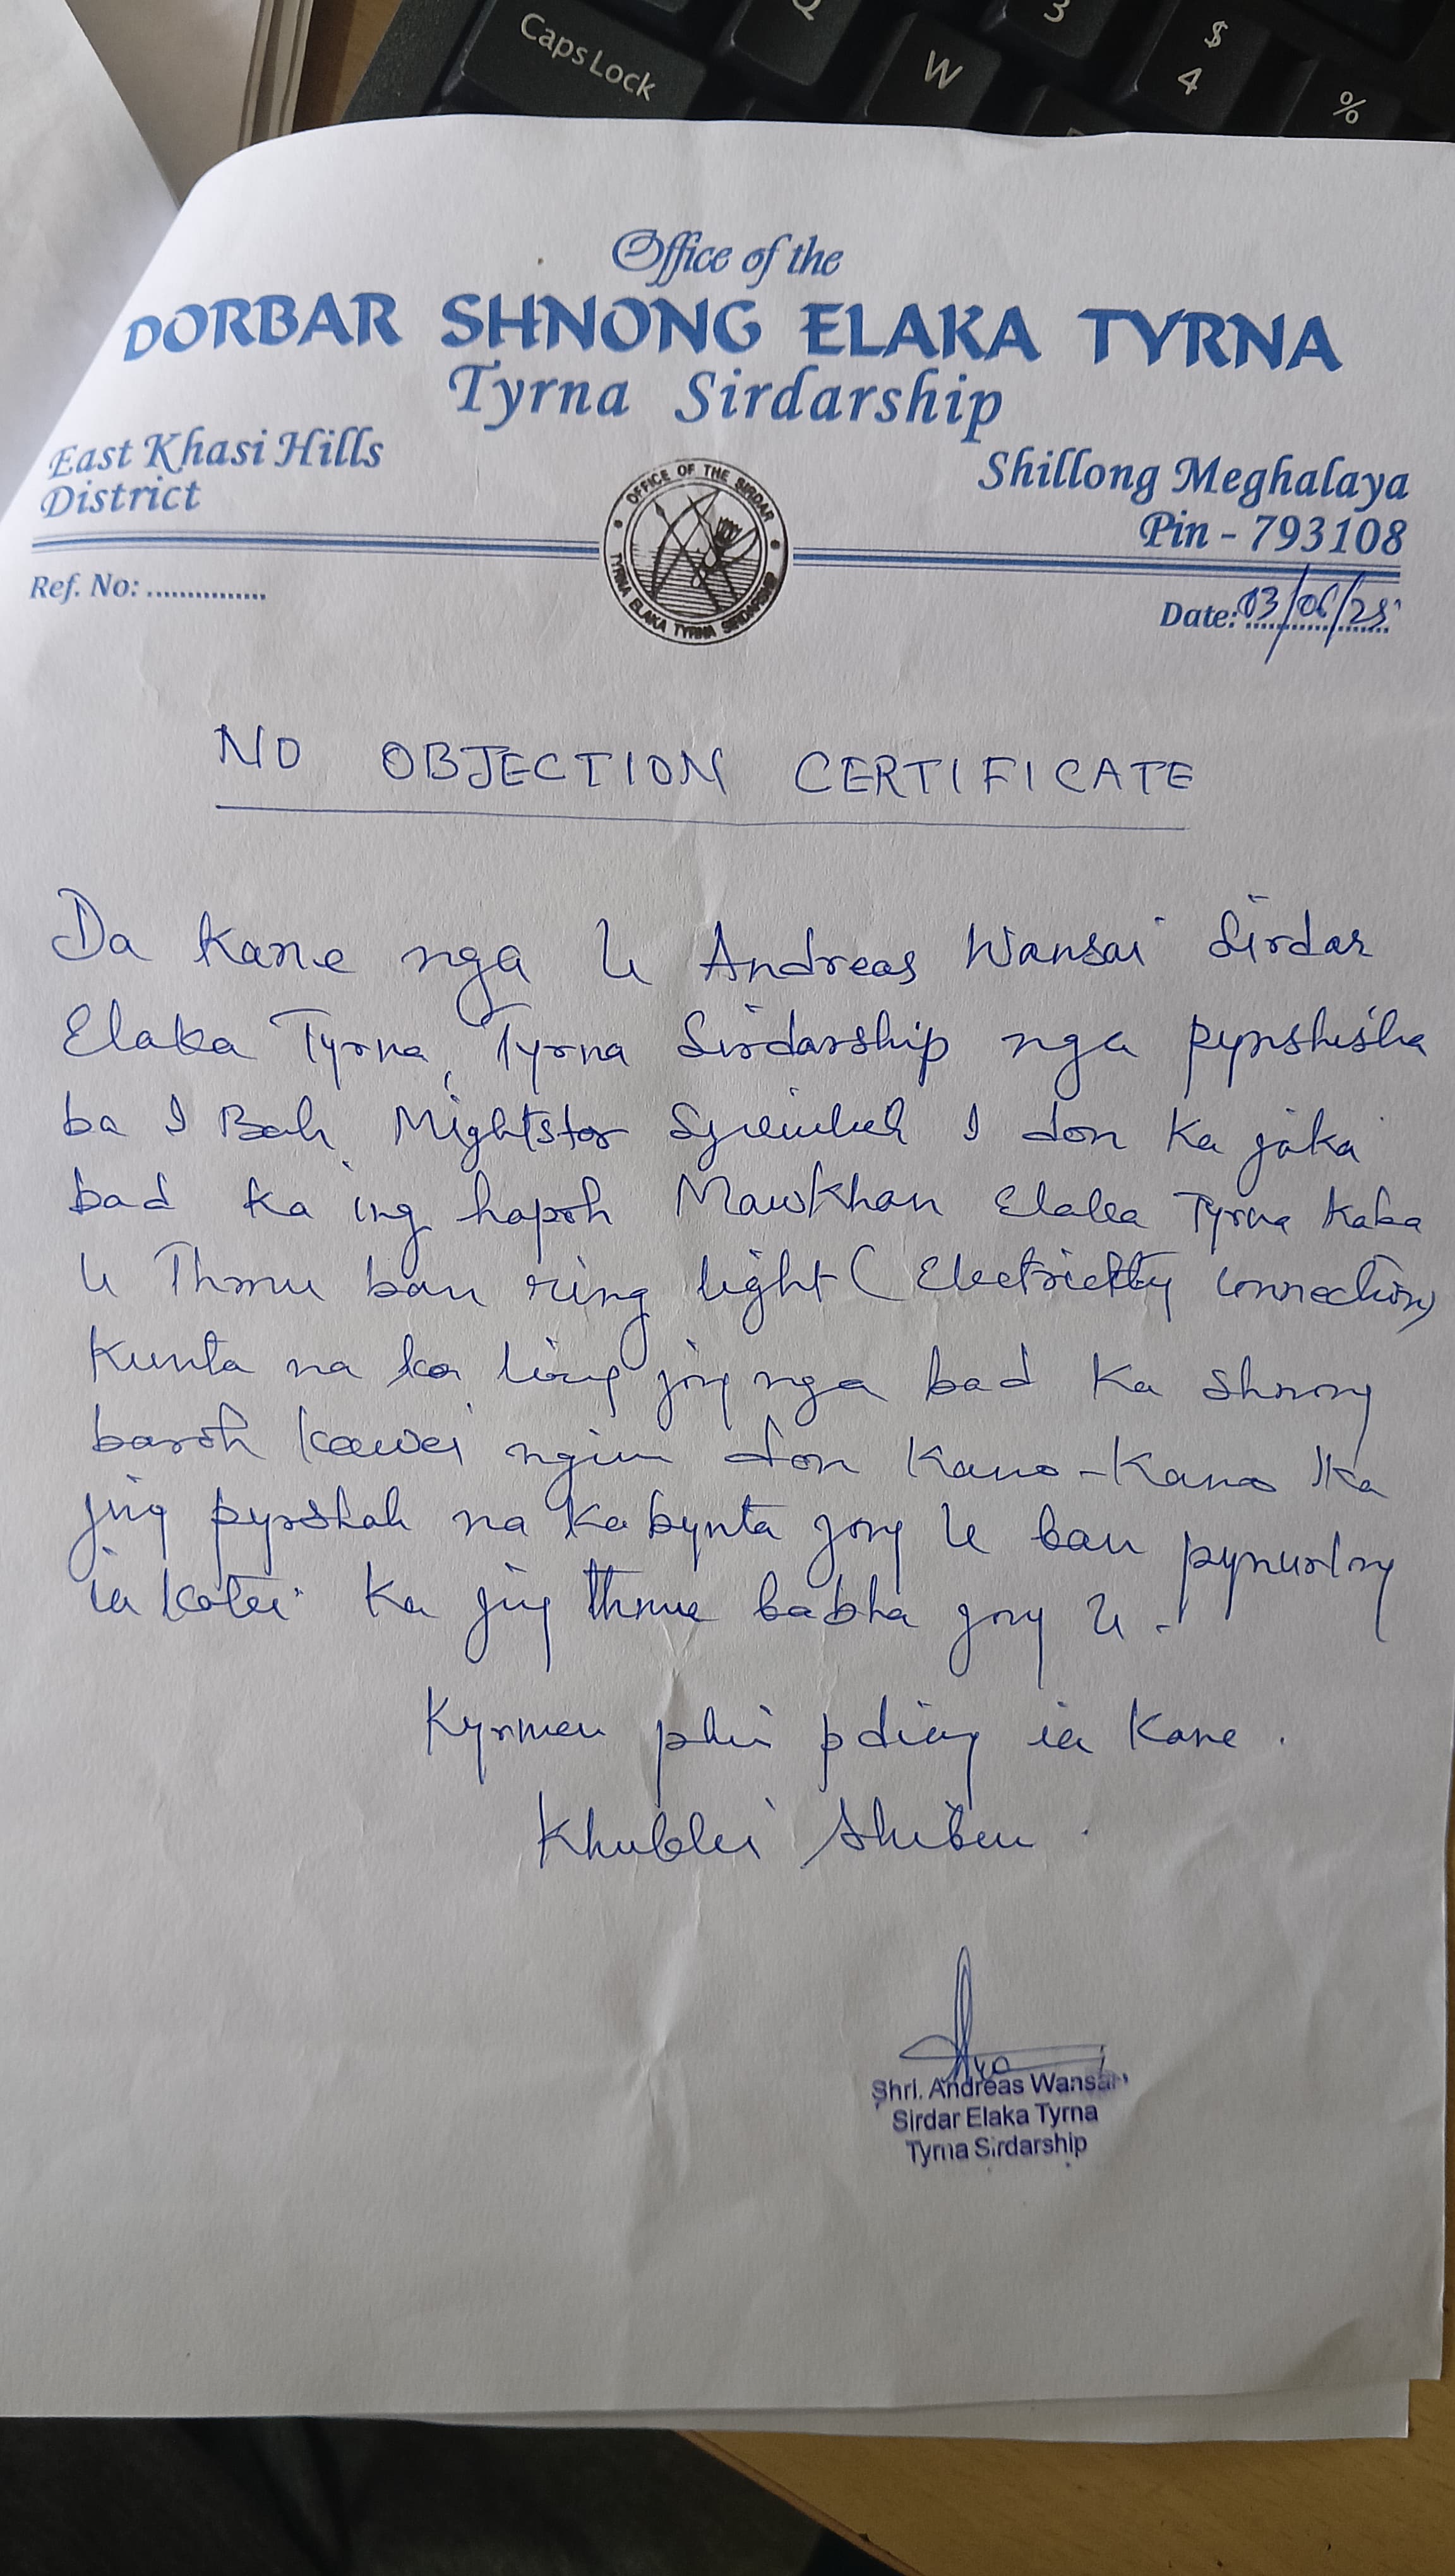 Caps Lock
Q
W
3
$
4
%
Office of the
DORBAR SHNONG ELAKA TYRNA
Tyrna Sirdarship
East Khasi Hills
District
Shillong Meghalaya
Pin - 793108
OFFICE OF THE SIRDAR
TYRNA ELAKA TYRNA SIRDARSHIP
Ref. No: ...............
Date: 03/06/25
NO OBJECTION CERTIFICATE
Da kane nga U Andreas Wansai Sirdar
Elaka Tyrna, Tyrna Sirdarship nga pynshisha
ba I Bah Mightstar I don ka jaka
bad ka ing hapoh Mawkhan Elaka Tyrna kaba
U Thmu ban ring light (Electricity connection)
Kunta na ka liang jong nga bad ka shnong
baroh kawei ngim don kano-kano ka
jing pyrshah na ka bynta jong U ban pynurlong
ia katei ka jing thmu babha jong U.
Kyrmen phin pdiang ia kane.
Khublei Shibun.
Shri. Andreas Wansai
Sirdar Elaka Tyrna
Tyrna Sirdarship